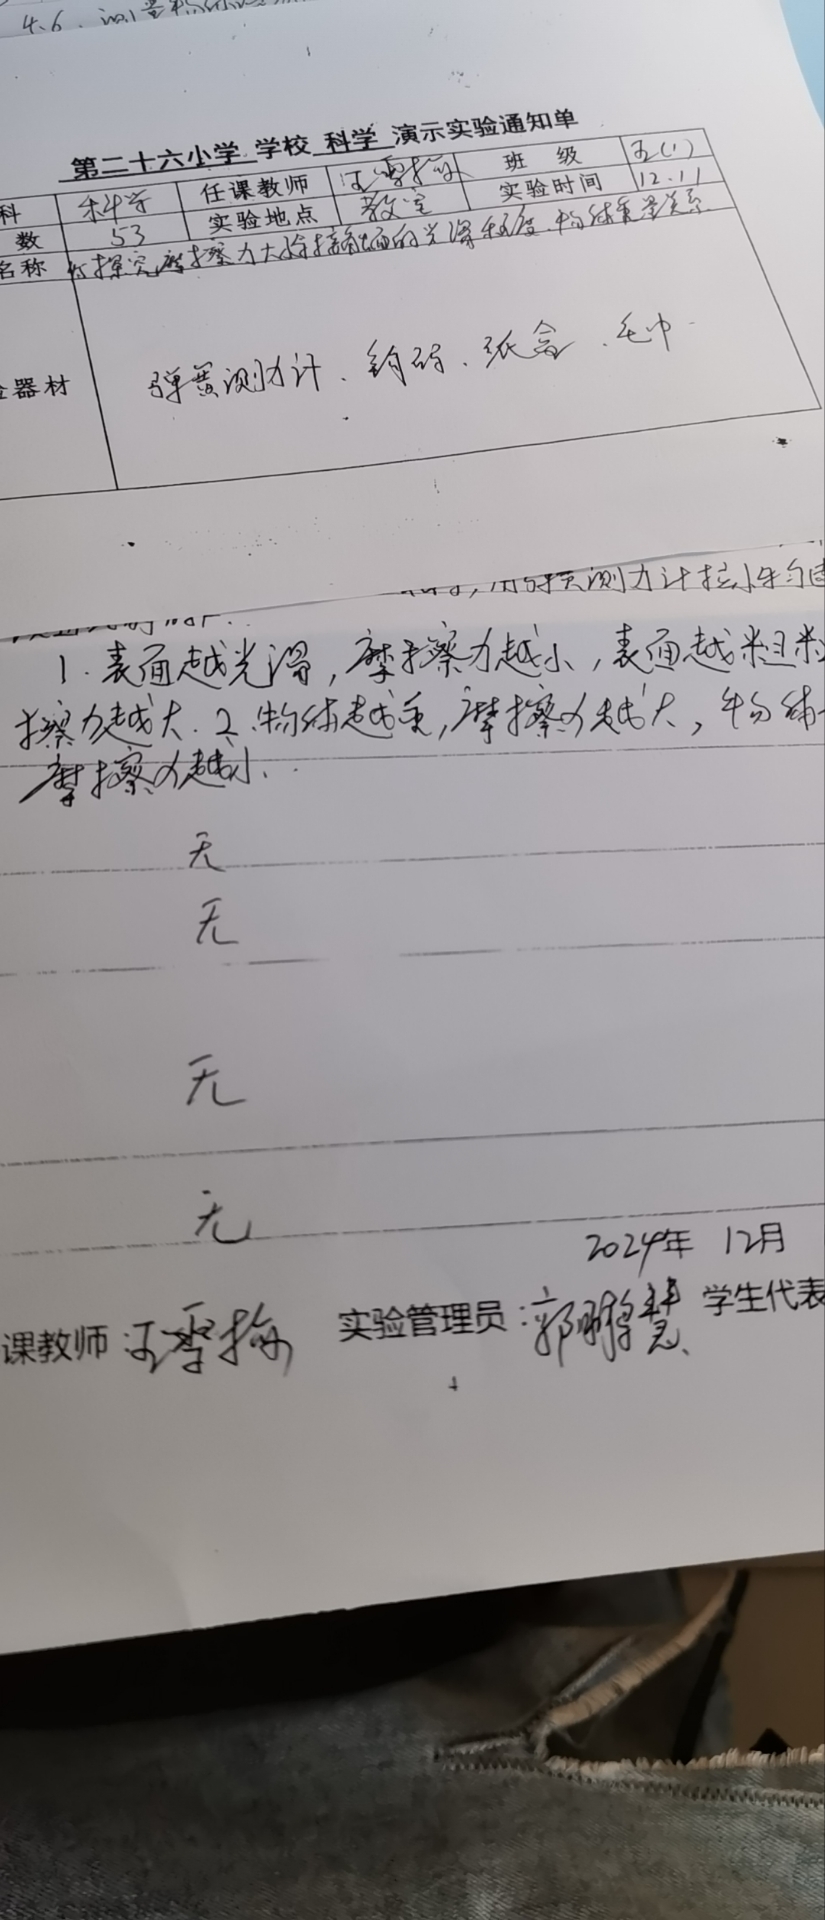 4.6.测量
第二十六小学 学校 科学 演示实验通知单
科 科学 任课教师 汪雪梅 班 级 五(1)
数 53 实验地点 教室 实验时间 12.11
名称 探究摩擦力大小与接触面的光滑程度、物体重量关系
器材 弹簧测力计、钩码、纸盒、毛巾
测力计拉
1.表面越光滑,摩擦力越小,表面越粗
擦力越大.2.物体越重,摩擦力越大,物体
摩擦力越小.
无
无
无
无
2024年 12月
课教师 汪雪梅 实验管理员: 郭 慧 学生代表